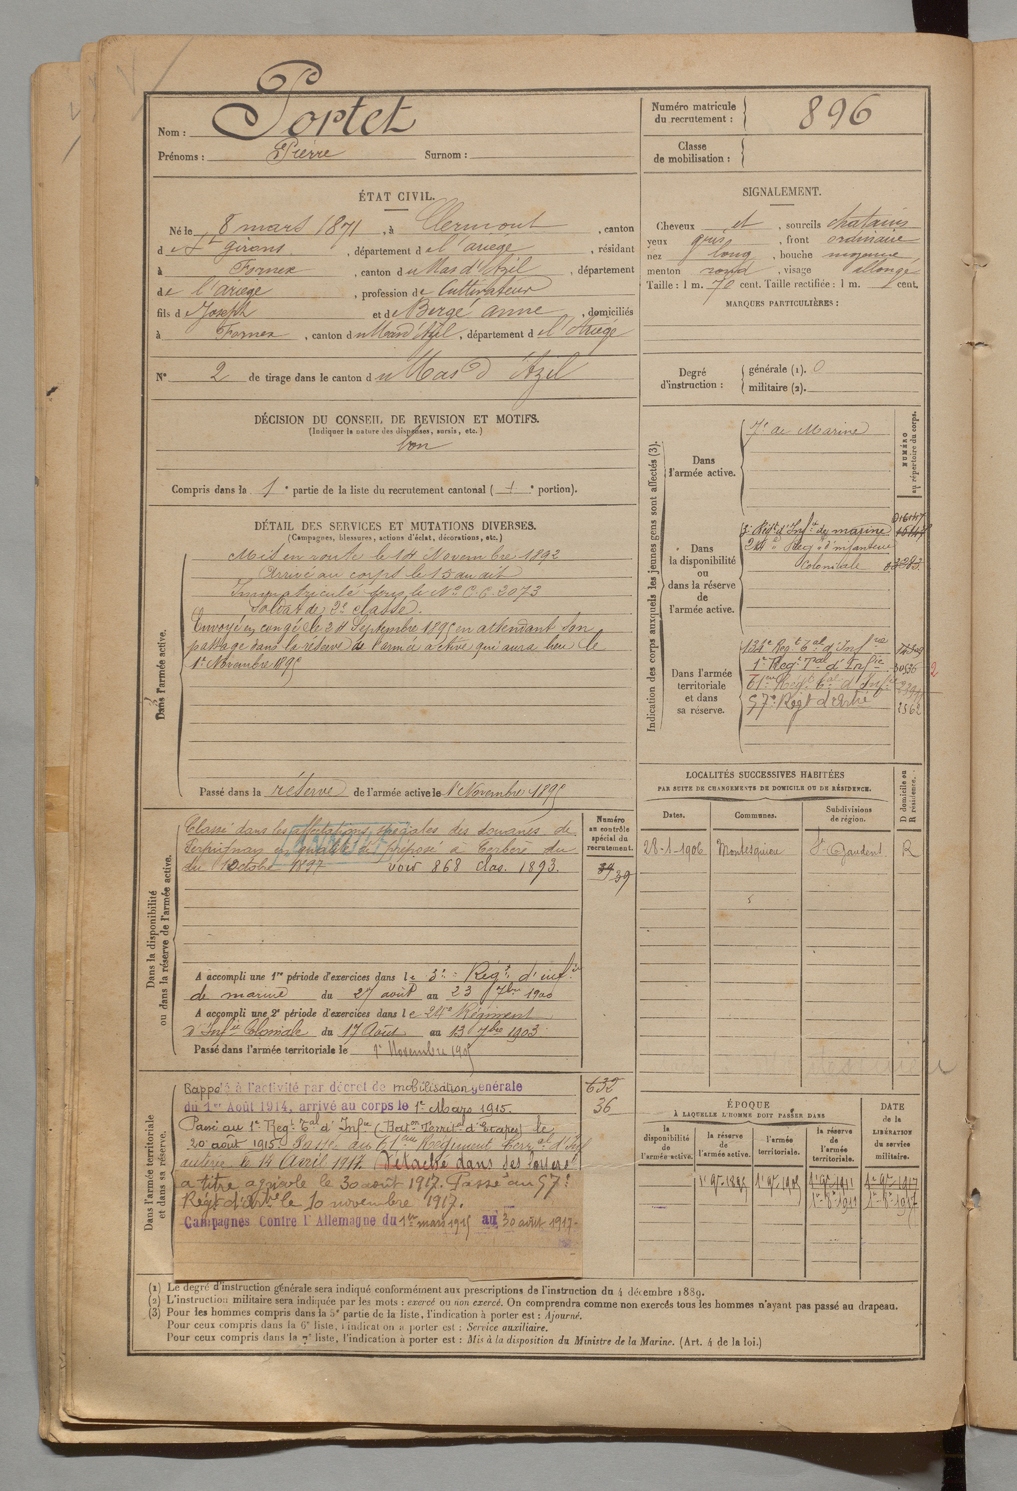 Nom : Portet
Prénoms : Pierre Surnom :
Numéro matricule du recrutement : 896
Classe de mobilisation :
ÉTAT CIVIL.
Né le 8 mars 1871, à Clermont, canton
de St Girons, département de l'ariège, résidant
à Fornex, canton du Mas d'Azil, département
de l'ariège, profession de Cultivateur
fils de Joseph et de Bergé anne, domiciliés
à Fornex, canton du Mas d'Azil, département de l'Ariège
N° 2 de tirage dans le canton du Mas d'Azil
SIGNALEMENT.
Cheveux et, sourcils chatains
yeux gris, front ordinaire
nez long, bouche moyenne,
menton rond, visage allongé
Taille : 1 m. 70 cent. Taille rectifiée : 1 m. cent.
MARQUES PARTICULIÈRES :
Degré d'instruction : générale (1). 0
militaire (2).
DÉCISION DU CONSEIL DE REVISION ET MOTIFS.
(Indiquer la nature des dispenses, sursis, etc.)
bon
Compris dans la 1e partie de la liste du recrutement cantonal ( portion).
DÉTAIL DES SERVICES ET MUTATIONS DIVERSES.
(Campagnes, blessures, actions d'éclat, décorations, etc.)
Dans l'armée active.
Mis en route le 14 Novembre 1892
Arrivé au corps le 15 au dit
Immatriculé sous le N° 2073
Soldat de 2e classe.
Envoyé en congé le 24 Septembre 1895 en attendant son
passage dans la réserve de l'armée active qui aura lieu le
1er Novembre 1895
Passé dans la réserve de l'armée active le 1er Novembre 1895
Indication des corps auxquels les jeunes gens sont affectés (3).
NUMÉRO au répertoire du corps.
Dans l'armée active.
7e de Marine
Dans la disponibilité ou dans la réserve de l'armée active.
3e Régt d'Inft de marine
24e Régt d'infanterie
Coloniale
Dans l'armée territoriale et dans sa réserve.
Régt Tal d'Infrie
1er Régt Tal d'Infrie 3036
61me Régt Tal d'Infie
57e Régt d'Artie 2562
LOCALITÉS SUCCESSIVES HABITÉES
PAR SUITE DE CHANGEMENTS DE DOMICILE OU DE RÉSIDENCE.
Dates. Communes. Subdivisions de région. D domicile ou R résidence.
28-1-1906 Montesquieu St Gaudens R
Dans la disponibilité ou dans la réserve de l'armée active.
Numéro au contrôle spécial du recrutement.
Classé dans les affectations spéciales des douanes de
Perpignan en qualité de préposé à Cerbère du
du Octobre 1897 voir 868 clas. 1893.
ANNULÉ
39
A accompli une 1re période d'exercices dans le 3e Régt d'infie
de marine du 27 août au 23 7bre 1900
A accompli une 2e période d'exercices dans le 24e Régiment
d'Infie Coloniale du 17 Août au 13 7bre 1903
Passé dans l'armée territoriale le 1er Novembre 1905
Dans l'armée territoriale et dans sa réserve.
Rappelé à l'activité par décret de mobilisation générale
du 1er Août 1914, arrivé au corps le 1er Mars 1915.
Passé au 1er Régt Tal d'Infie (Baton Territal d'Etapes) le
20 août 1915. Passé au 61me Régiment Terral d'Inf
le 14 Avril 1917. Détaché dans ses foyers
à titre agricole le 30 août 1917. Passé au 57e
Régt d'Artie le 10 novembre 1917.
Campagnes Contre l'Allemagne du 1er mars 1915 au 30 août 1917
632
36
ÉPOQUE
À LAQUELLE L'HOMME DOIT PASSER DANS
la disponibilité de l'armée active. la réserve de l'armée active. l'armée territoriale. la réserve de l'armée territoriale.
DATE de la LIBÉRATION du service militaire.
1er 9bre 1895 1er 9bre 1905 1er 9bre 1911 1er 9bre 1917
(1) Le degré d'instruction générale sera indiqué conformément aux prescriptions de l'instruction du 4 décembre 1889.
(2) L'instruction militaire sera indiquée par les mots : exercé ou non exercé. On comprendra comme non exercés tous les hommes n'ayant pas passé au drapeau.
(3) Pour les hommes compris dans la 5e partie de la liste, l'indication à porter est : Ajourné.
Pour ceux compris dans la 6e liste, l'indication à porter est : Service auxiliaire.
Pour ceux compris dans la 7e liste, l'indication à porter est : Mis à la disposition du Ministre de la Marine. (Art. 4 de la loi.)